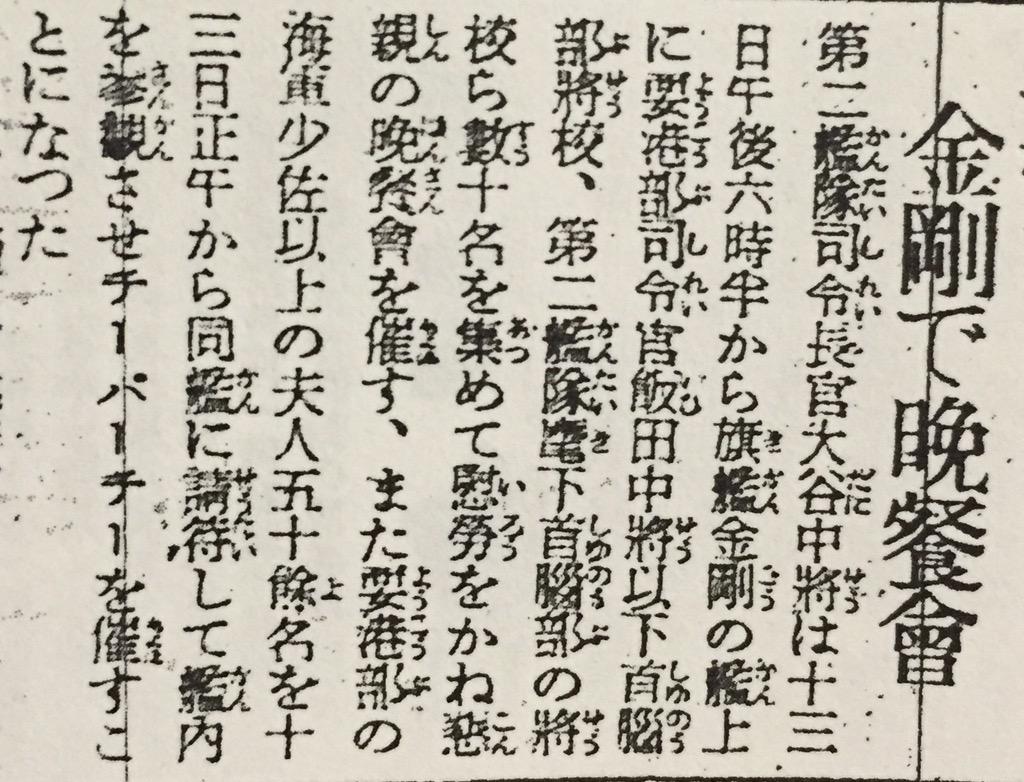 金剛で晩餐會
第二艦隊司令長官大谷中將は十三
日午後六時半から旗艦金剛の艦上
に要港部司令官飯田中將以下首腦
部將校、第二艦隊麾下首腦部の將
校ら數十名を集めて慰勞をかね懇
親の晩餐會を催す、また要港部の
海軍少佐以上の夫人五十餘名を十
三日正午から同艦に請待して艦内
を參觀させチーパーチーを催すこ
とになつた